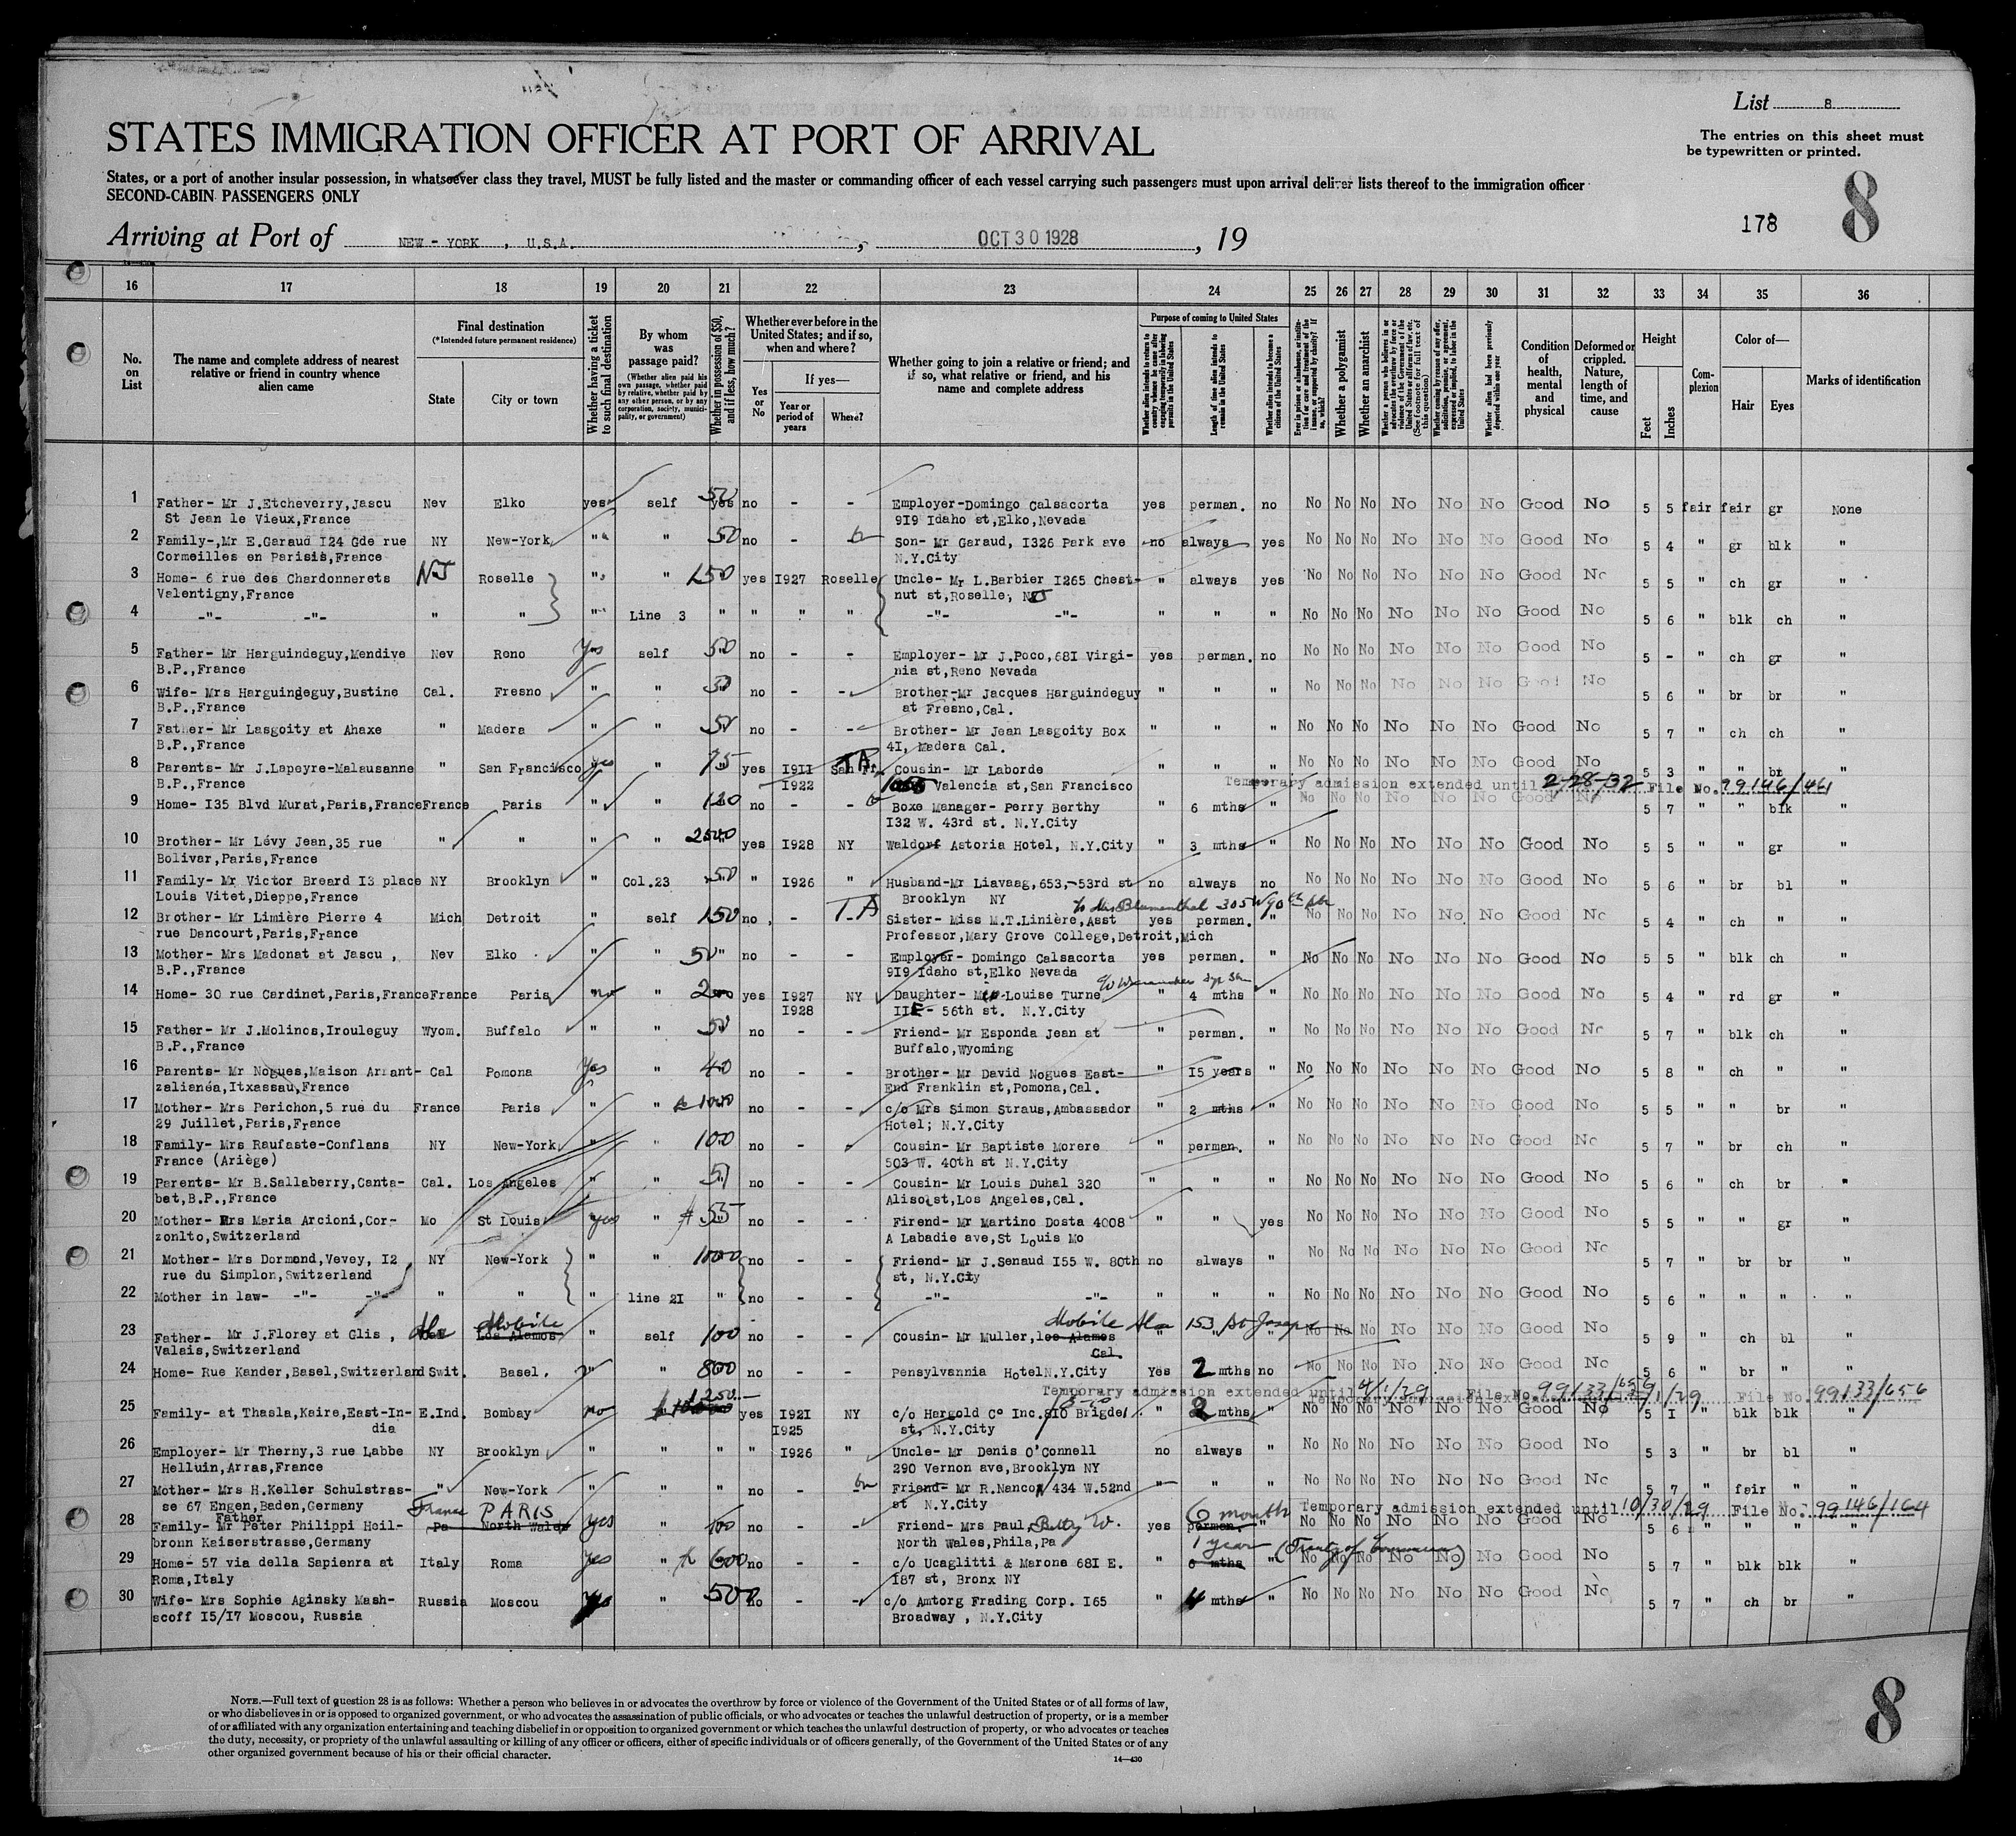 List 8
STATES IMMIGRATION OFFICER AT PORT OF ARRIVAL
The entries on this sheet must
be typewritten or printed.
States, or a port of another insular possession, in whatsoever class they travel, MUST be fully listed and the master or commanding officer of each vessel carrying such passengers must upon arrival deliver lists thereof to the immigration officer
SECOND-CABIN PASSENGERS ONLY
178 8
Arriving at Port of NEW-YORK, U.S.A. , OCT 30 1928 , 19
16 17 18 19 20 21 22 23 24 25 26 27 28 29 30 31 32 33 34 35 36
No. on List
The name and complete address of nearest relative or friend in country whence alien came
Final destination
(*Intended future permanent residence)
State City or town
Whether having a ticket to such final destination
By whom was passage paid?
(Whether alien paid his own passage, whether paid by relative, whether paid by any other person, or by any corporation, society, municipality, or government)
Whether in possession of $50, and if less, how much?
Whether ever before in the United States; and if so, when and where?
Yes or No
If yes—
Year or period of years Where?
Whether going to join a relative or friend; and if so, what relative or friend, and his name and complete address
Purpose of coming to United States
Whether alien intends to return to country whence he came after engaging temporarily in laboring pursuits in the United States
Length of time alien intends to remain in the United States
Whether alien intends to become a citizen of the United States
Ever in prison or almshouse, or institution for care and treatment of the insane, or supported by charity? If so, which?
Whether a polygamist
Whether an anarchist
Whether a person who believes in or advocates the overthrow by force or violence of the Government of the United States or all forms of law, etc. (See footnote for full text of this question)
Whether coming by reason of any offer, solicitation, promise, or agreement, expressed or implied, to labor in the United States
Whether alien had been previously deported within one year
Condition of health, mental and physical
Deformed or crippled. Nature, length of time, and cause
Height
Feet Inches
Complexion
Color of—
Hair Eyes
Marks of identification
1 Father- Mr J.Etcheverry,Jascu Nev Elko yes self 50 yes no - - Employer-Domingo Calsacorta yes perman. no No No No No No No Good No 5 5 fair fair gr None
St Jean le Vieux,France 919 Idaho st,Elko,Nevada
2 Family-,Mr E.Garaud I24 Gde rue NY New-York " " 50 no - - Son- Mr Garaud, I326 Park ave no always yes No No No No No No Good No 5 4 " gr blk "
Cormeilles en Parisis,France N.Y.City
3 Home- 6 rue des Chardonnerets NJ Roselle " " 150 yes I927 Roselle Uncle- Mr L.Barbier I265 Chest- " always yes No No No No No No Good No 5 5 " ch gr "
Valentigny,France nut st,Roselle, NJ
4 -"- -"- " " " Line 3 " " " " -"- -"- " " " No No No No No No Good No 5 6 " blk ch "
5 Father- Mr Harguindeguy,Mendive Nev Reno Yes self 50 no - - Employer- Mr J.Poco,68I Virgi- yes perman. no No No No No No No Good No 5 - " ch gr "
B.P.,France nia st,Reno Nevada
6 Wife- Mrs Harguindeguy,Bustine Cal. Fresno " " 50 no - - Brother-Mr Jacques Harguindeguy " " " No No No No No No Good No 5 6 " br br "
B.P.,France at Fresno,Cal.
7 Father- Mr Lasgoity at Ahaxe " Madera " " 50 no - - Brother- Mr Jean Lasgoity Box " " " No No No No No No Good No 5 7 " ch ch "
B.P.,France 4I, Madera Cal.
8 Parents- Mr J.Lapeyre-Malausanne " San Francisco yes " 75 yes I9II San Fr. Cousin- Mr Laborde " " " No No No No No No Good No 5 3 " " br "
B.P.,France I922 Valencia st,San Francisco
Temporary admission extended until 2-28-32 File No. 99146/461
9 Home- I35 Blvd Murat,Paris,France France Paris " " 120 no - - Boxe Manager- Perry Berthy " 6 mths " No No No No No No Good No 5 7 " " blk "
I32 W. 43rd st. N.Y.City
10 Brother- Mr Lévy Jean,35 rue " " " 2500 yes I928 NY Waldorf Astoria Hotel, N.Y.City " 3 mths " No No No No No No Good No 5 5 " " gr "
Bolivar,Paris,France
11 Family- Mr Victor Breard I3 place NY Brooklyn " Col.23 50 " I926 " Husband-Mr Liavaag,653,-53rd st no always no No No No No No No Good No 5 6 " br bl "
Louis Vitet,Dieppe,France Brooklyn NY
12 Brother- Mr Limière Pierre 4 Mich Detroit " self 150 no - T.A Sister- Miss M.T.Linière,Asst yes perman. " No No No No No No Good No 5 4 " ch " "
rue Dancourt,Paris,France Professor,Mary Grove College,Detroit,Mich
13 Mother- Mrs Madonat at Jascu , Nev Elko " " 50 " no - - Employer- Domingo Calsacorta yes perman. " No No No No No No Good No 5 5 " blk ch "
B.P.,France 919 Idaho st,Elko Nevada
14 Home- 30 rue Cardinet,Paris,France France Paris no " 200 yes I927 NY Daughter- Louise Turne " 4 mths " No No No No No No Good No 5 4 " rd gr "
I928 56th st. N.Y.City
15 Father- Mr J.Molinos,Irouleguy Wyom. Buffalo " " 50 no - - Friend- Mr Esponda Jean at " perman. " No No No No No No Good No 5 7 " blk ch "
B.P.,France Buffalo,Wyoming
16 Parents- Mr Nogues,Maison Arrant- Cal Pomona Yes " 40 no - - Brother- Mr David Nogues East- " I5 years " No No No No No No Good No 5 8 " ch " "
zalianéa,Itxassau,France End Franklin st,Pomona,Cal.
17 Mother- Mrs Perichon,5 rue du France Paris " " 1000 no - - c/o Mrs Simon Straus,Ambassador " 2 mths " No No No No No No Good No 5 5 " " br "
29 Juillet,Paris,France Hotel; N.Y.City
18 Family- Mrs Raufaste-Conflans NY New-York " " 100 no - - Cousin- Mr Baptiste Morere " perman. " No No No No No No Good No 5 7 " br ch "
France (Ariège) 503 W. 40th st N.Y.City
19 Parents- Mr B.Sallaberry,Canta- Cal. Los Angeles " " no - - Cousin- Mr Louis Duhal 320 " " " No No No No No No Good No 5 6 " ch br "
bet,B.P.,France Aliso st,Los Angeles,Cal.
20 Mother- Mrs Maria Arcioni,Cor- Mo St Louis yes " $ 55 no - - Firend- Mr Martino Dosta 4008 " " yes No No No No No No Good No 5 5 " " gr "
zonlto,Switzerland A Labadie ave,St Louis Mo
21 Mother- Mrs Dormond,Vevey, I2 NY New-York " " 1000 no - - Friend- Mr J.Senaud I55 W. 80th no always " No No No No No No Good No 5 7 " br br "
rue du Simplon,Switzerland st, N.Y.City
22 Mother in law- -"- -"- " " " line 2I " no - - -"- -"- " " " No No No No No No Good No 5 6 " " " "
23 Father- Mr J.Florey at Glis , Ala Mobile Los Alamos " self 100 no - - Cousin- Mr Muller, los Alamos Mobile Ala 153 St Joseph " " " No No No No No No Good No 5 9 " ch bl "
Valais,Switzerland Cal.
24 Home- Rue Kander,Basel,Switzerland Swit. Basel. " " 800 no - - Pensylvannia Hotel N.Y.City Yes 2 mths no No No No No No No Good No 5 6 " br " "
Temporary admission extended until 4/1/29 File No. 99133/656 File No. 99133/656
25 Family- at Thasla,Kaire,East-In- E.Ind. Bombay no 1250.— yes I92I NY c/o Hargold Cº Inc. 8I0 Brigde " 2 mths " No No No No No No Good No 5 I " blk blk "
dia I925 st, N.Y.City
26 Employer- Mr Therny,3 rue Labbe NY Brooklyn " " " " I926 " Uncle- Mr Denis O'Connell no always " No No No No No No Good No 5 3 " br bl "
Helluin,Arras,France 290 Vernon ave,Brooklyn NY
27 Mother- Mrs H.Keller Schulstras- " New-York " " " no - Friend- Mr R.Nanco 434 W.52nd " " " No No No No No No Good No 5 7 " fair " "
se 67 Engen,Baden,Germany st N.Y.City
France PARIS 6 months Temporary admission extended until 10/30/29 File No. 99146/164
Father
28 Family- Mr Peter Philippi Heil- Pa North Wales yes " 100 no - - Friend- Mrs Paul, Betty W. yes perman. " No No No No No No Good No 5 6 " " " "
bronn Kaiserstrasse,Germany North Wales,Phila,Pa
1 year (Treaty of Commerce)
29 Home- 57 via della Sapienra at Italy Roma Yes " 600 no - - c/o Ucaglitti & Marona 68I E. " 6 mths " No No No No No No Good No 5 7 " blk blk "
Roma,Italy I87 st, Bronx NY
30 Wife- Mrs Sophie Aginsky Mash- Russia Moscou yes " 500 no - - c/o Amtorg Frading Corp. I65 " 4 mths " No No No No No No Good No 5 7 " ch br "
scoff I5/I7 Moscou, Russia Broadway , N.Y.City
NOTE.—Full text of question 28 is as follows: Whether a person who believes in or advocates the overthrow by force or violence of the Government of the United States or of all forms of law,
or who disbelieves in or is opposed to organized government, or who advocates the assassination of public officials, or who advocates or teaches the unlawful destruction of property, or is a member
of or affiliated with any organization entertaining and teaching disbelief in or opposition to organized government or which teaches the unlawful destruction of property, or who advocates or teaches
the duty, necessity, or propriety of the unlawful assaulting or killing of any officer or officers, either of specific individuals or of officers generally, of the Government of the United States or of any
other organized government because of his or their official character.
14—430
8